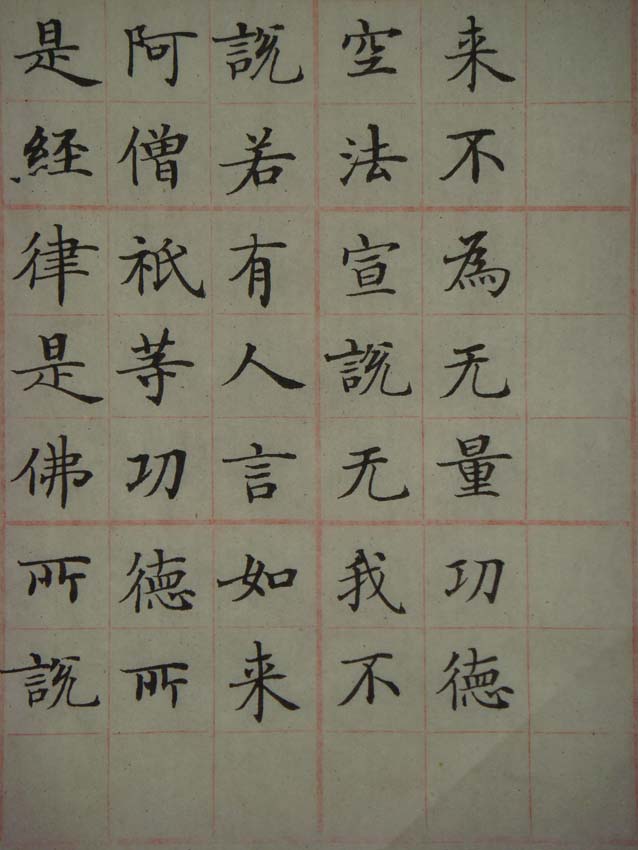 来不為无量功德
空法宣說无我不
說若有人言如来
阿僧祇等功德所
是經律是佛所說